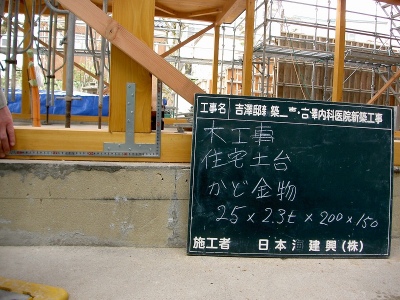 工事名 吉澤邸新築工事・吉澤内科医院新築工事
大工事
住宅土台
かど金物
25×2.3t×200×150
施工者 日本 建興(株)